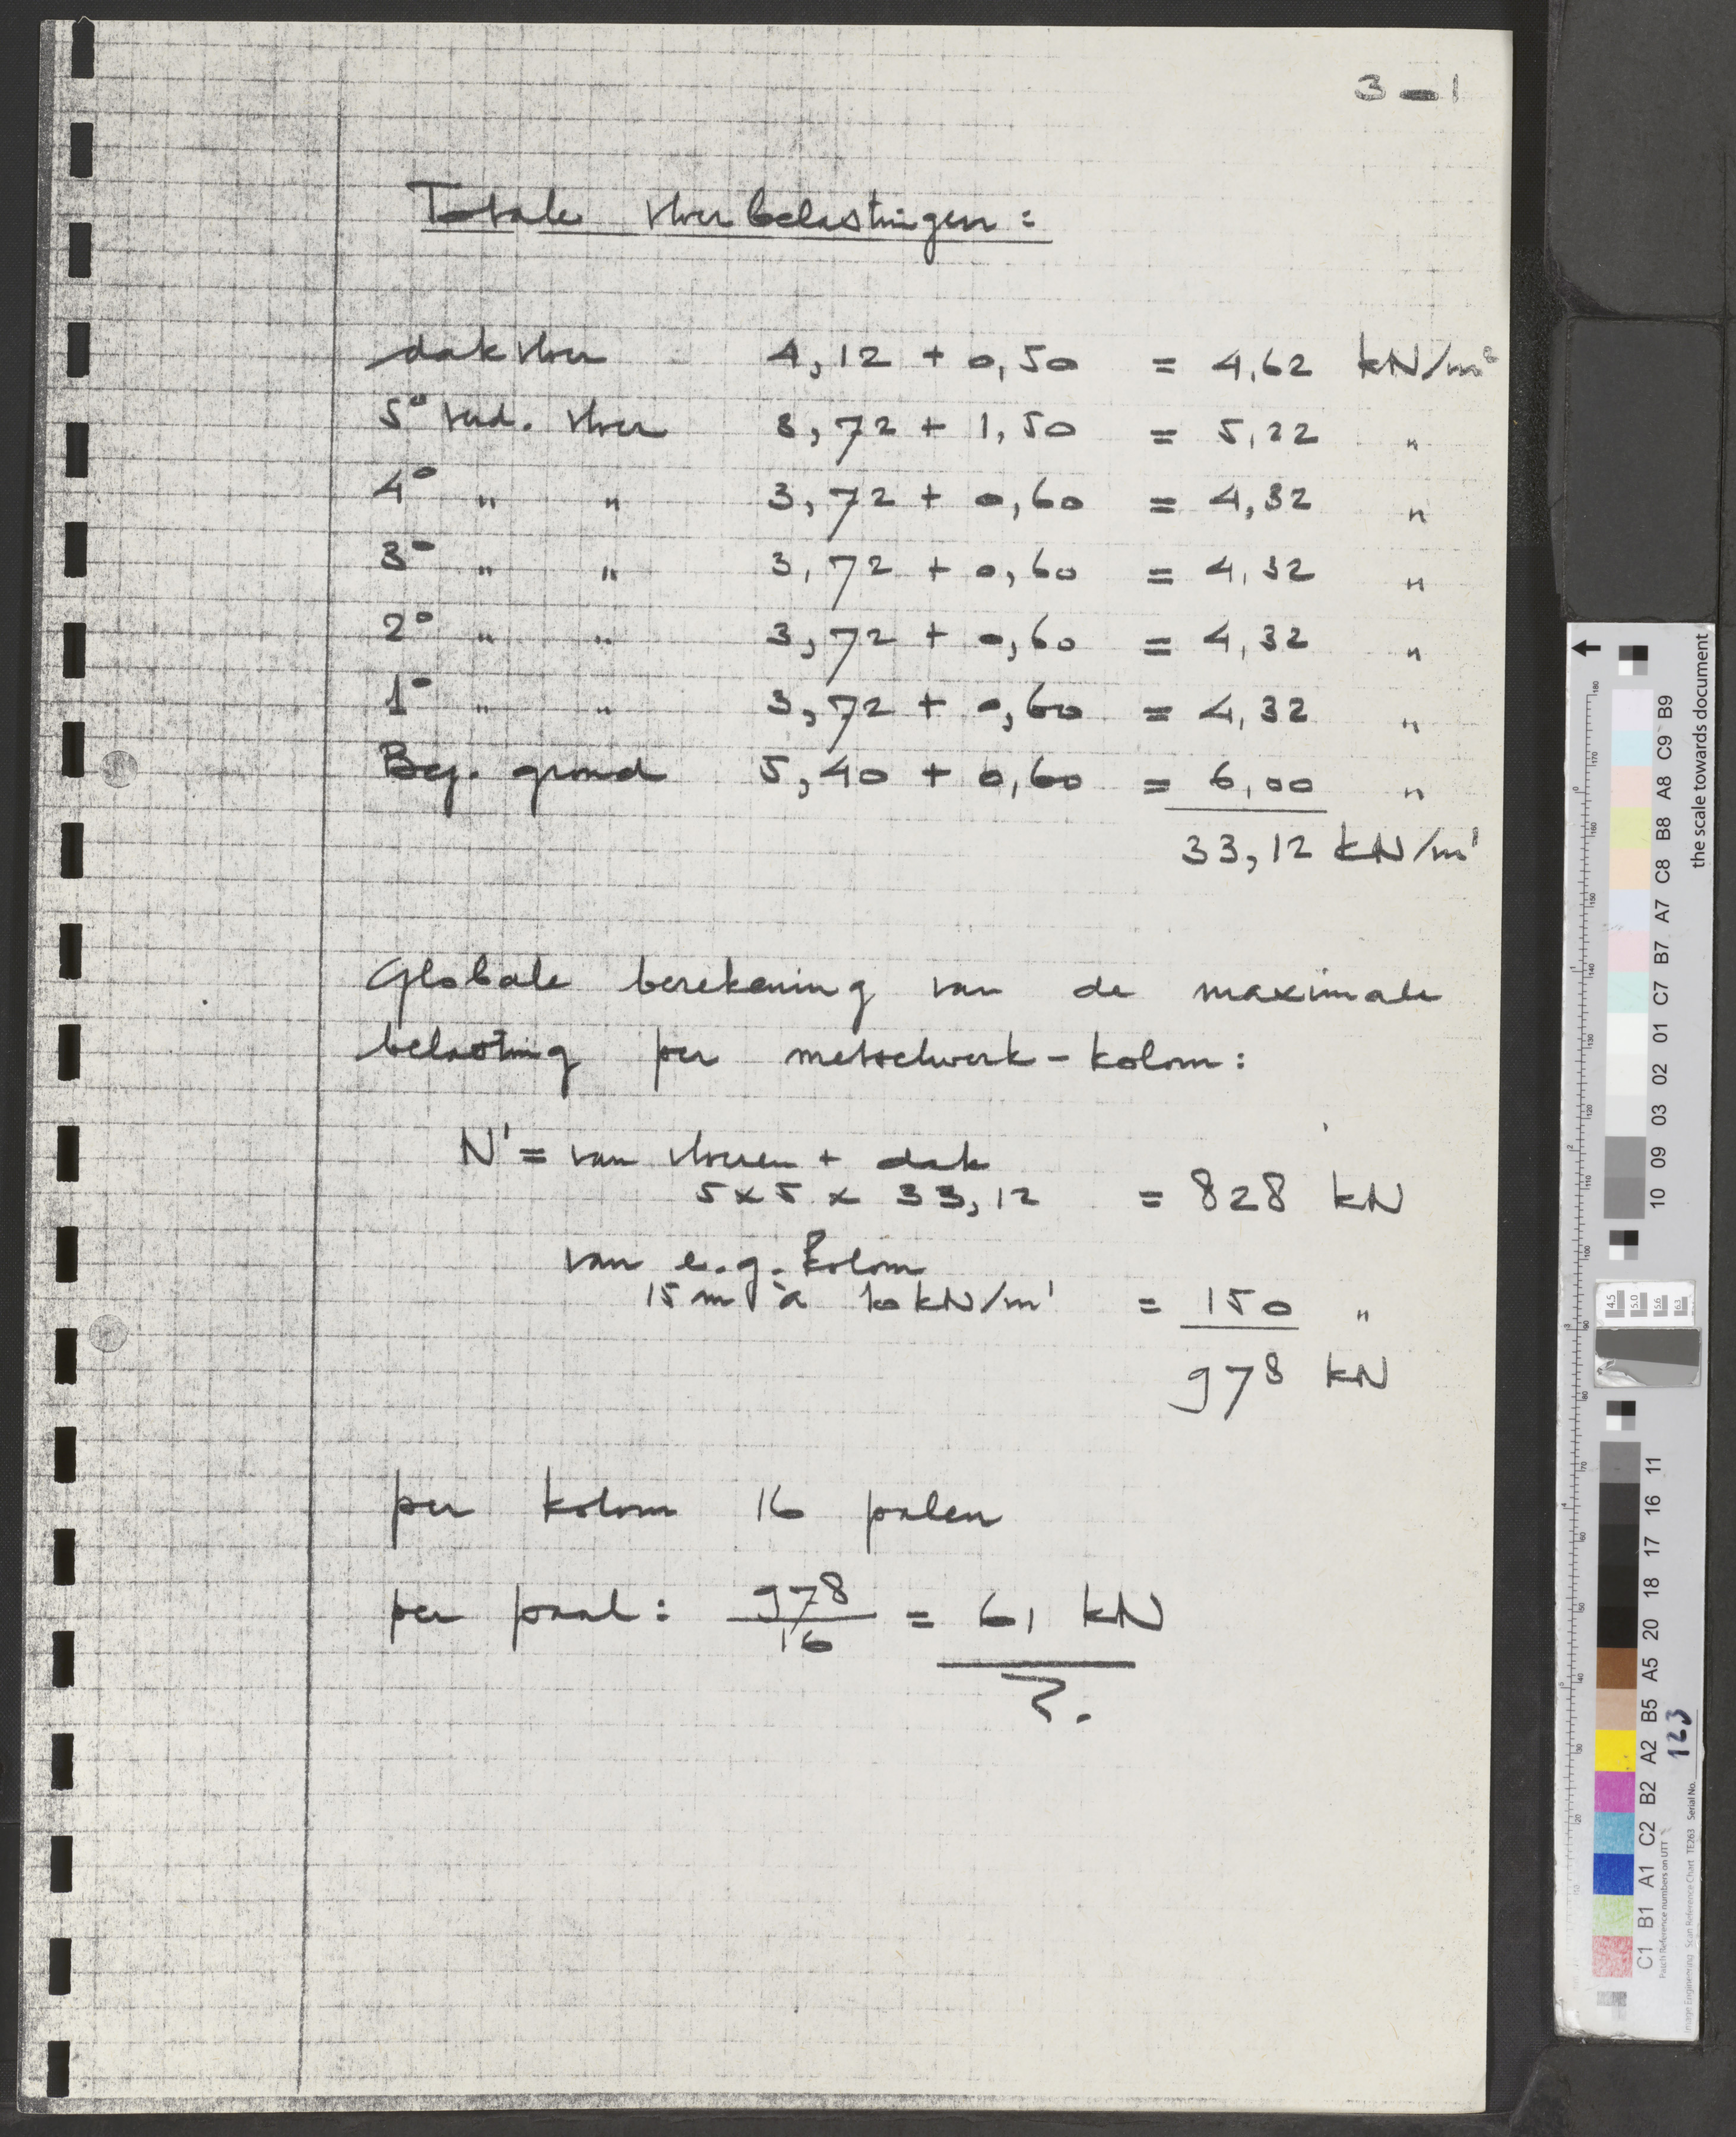 3-1
Totale vloerbelastingen:
dakvloer 4,12 + 0,50 = 4,62 kN/m²
5° verd. vloer 3,72 + 1,50 = 5,22 "
4° " " 3,72 + 0,60 = 4,32 "
3° " " 3,72 + 0,60 = 4,32 "
2° " " 3,72 + 0,60 = 4,32 "
1° " " 3,72 + 0,60 = 4,32 "
Beg. grond 5,40 + 0,60 = 6,00 "
33,12 kN/m'
Globale berekening van de maximale
belasting per metselwerk-kolom:
N' = van vloeren + dak
5 x 5 x 33,12 = 828 kN
van e.g. kolom
15 m à 10 kN/m' = 150 "
978 kN
per kolom 16 palen
per paal: 978/16 = 61 kN
?.
the scale towards document
C1 B1 A1 C2 B2 A2 B5 A5 20 18 17 16 11
10 09 03 02 01 C7 B7 A7 C8 B8 A8 C9 B9
Patch Reference numbers on UTT
Image Engineering Scan Reference Chart TE263 Serial No. 123